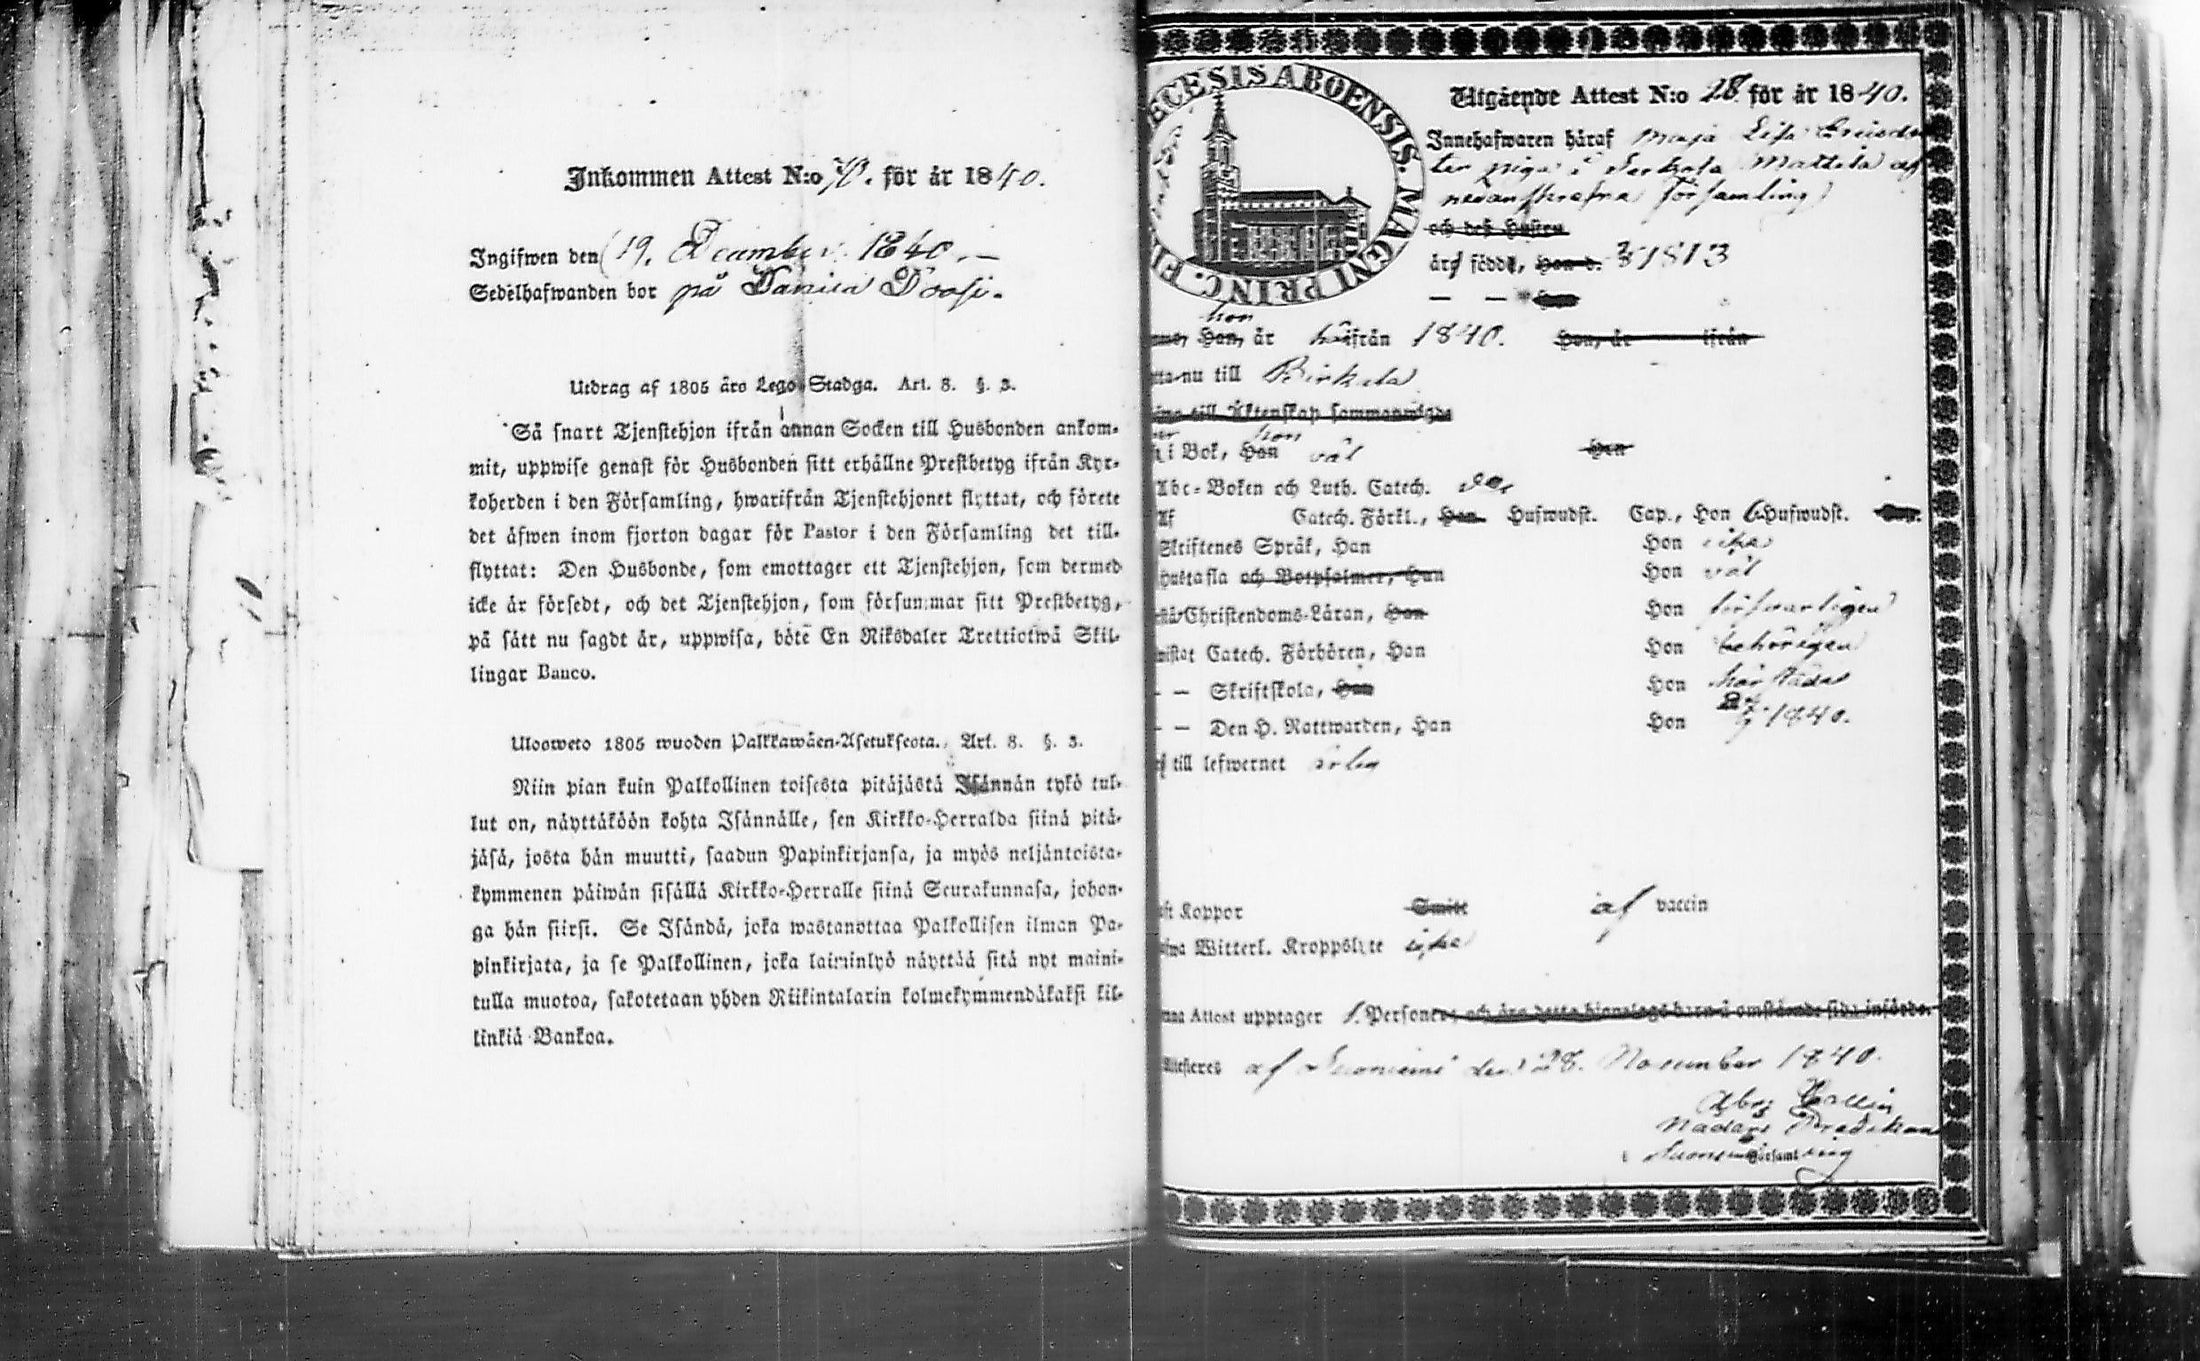 Inkommen Attest N:o 70. för år 1840.
Ingifwen den 19. December 1840.
Sedelhafwanden bor på Daniela Doosi.
Utdrag af 1805 års Lego-Stadga. Art. 8. §. 3.
Så snart Tjenstehjon ifrån annan Socken till Husbonden ankom-
mit, uppwise genast för Husbonden sitt erhållne Prestbetyg ifrån Kyr-
koherden i den Församling, hwarifrån Tjenstehjonet flyttat, och förete
det äfwen inom fjorton dagar för Pastor i den Församling det till-
flyttat: Den Husbonde, som emottager ett Tjenstehjon, som dermed
icke är försedt, och det Tjenstehjon, som försummar sitt Prestbetyg,
på sätt nu sagdt är, uppwisa, böte En Riksdaler Trettiotwå Skil-
lingar Banco.
Ulosweto 1805 wuoden Palkkawäen-Asetuksesta. Art. 8. §. 3.
Niin pian kuin Palkollinen toisesta pitäjästä Isännän tykö tul-
lut on, näyttäköön kohta Isännälle, sen Kirkko-Herralda siinä pitä-
jäsä, josta hän muutti, saadun Papinkirjansa, ja myös neljäntoista-
kymmenen päiwän sisällä Kirkko-Herralle siinä Seurakunnasa, johon-
ga hän siirsi. Se Isändä, joka wastanottaa Palkollisen ilman Pa-
pinkirjata, ja se Palkollinen, joka laiminlyö näyttää sitä nyt maini-
tulla muotoa, sakotetaan yhden Riikintalarin kolmekymmendäkaksi kil-
linkiä Bankoa.
ECESIS ABOENSIS. MAGNI PRINC. FI
Utgående Attest N:o 28 för år 1840.
Innehafwaren häraf Maja Lisa
ter piga i Mattila af
nedanskrefna församling
och dess Hustru
född, Hon d. 1813
hon
Han, är härifrån 1840. Hon, är ifrån
nu till Birkala
till Äktenskap sammanwigde
hon
i Bok, Han väl Hon
Abc-Boken och Luth. Catech.
Af Catech. Förkl., Han Hufwudst. Cap., Hon 6 Hufwudst. Cap.
Skriftenes Språk, Han Hon icke
Hustafla och Botpsalmer, Han Hon väl
Christendoms-Läran, Han Hon försvarligen
wistat Catech. Förhören, Han Hon behörigen
— — Skriftskola, Han Hon
— — Den H. Nattwarden, Han Hon 1840.
till lefwernet ärlig
Koppor Smitt af vaccin
Witterl. Kroppslyte icke
Attest upptager 1. Personer och äro detta hjonelags barn å omstående sida införde.
Attesteres af Suoniemi den 28. November 1840.
Nådårs Predikan
i Suoniemi Församling